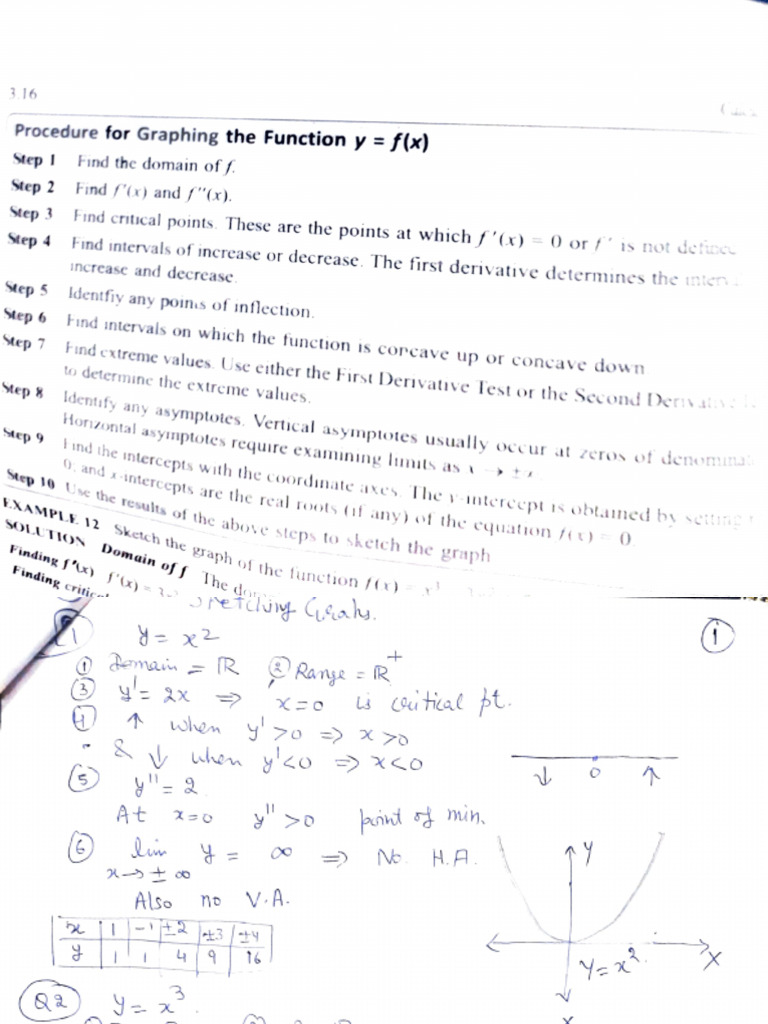 3.16
Procedure for Graphing the Function y = f(x)
Step 1 Find the domain of f.
Step 2 Find f'(x) and f''(x).
Step 3 Find critical points. These are the points at which f'(x) = 0 or f' is not define
Step 4 Find intervals of increase or decrease. The first derivative determines the
increase and decrease.
Step 5 Identfiy any points of inflection.
Step 6 Find intervals on which the function is concave up or concave down
Step 7 Find extreme values. Use either the First Derivative Test or the Second Derivative
to determine the extreme values.
Step 8 Identify any asymptotes. Vertical asymptotes usually occur at zeros of denomina
Horizontal asymptotes require examining limits as x → ±∞
Step 9 Find the intercepts with the coordinate axes. The y-intercept is obtained by setting
0; and x-intercepts are the real roots (if any) of the equation f(x) = 0
Step 10 Use the results of the above steps to sketch the graph
EXAMPLE 12 Sketch the graph of the function f(x) = x³
SOLUTION Domain of f The
Finding f'(x) f'(x) =
Finding
Graphs.
1 y = x² 1
① Domain = ℝ ② Range = ℝ⁺
③ y' = 2x ⇒ x=0 is critical pt.
④ ↑ when y'>0 ⇒ x>0
& ↓ when y'<0 ⇒ x<0
↓ 0 ↑
⑤ y'' = 2
At x=0 y''>0 point of min.
⑥ lim y = ∞ ⇒ No H.A.
x→±∞
Also no V.A.
x 1 -1 ±2 ±3 ±4
y 1 1 4 9 16
Y
X
y = x².
Q2 y = x³.